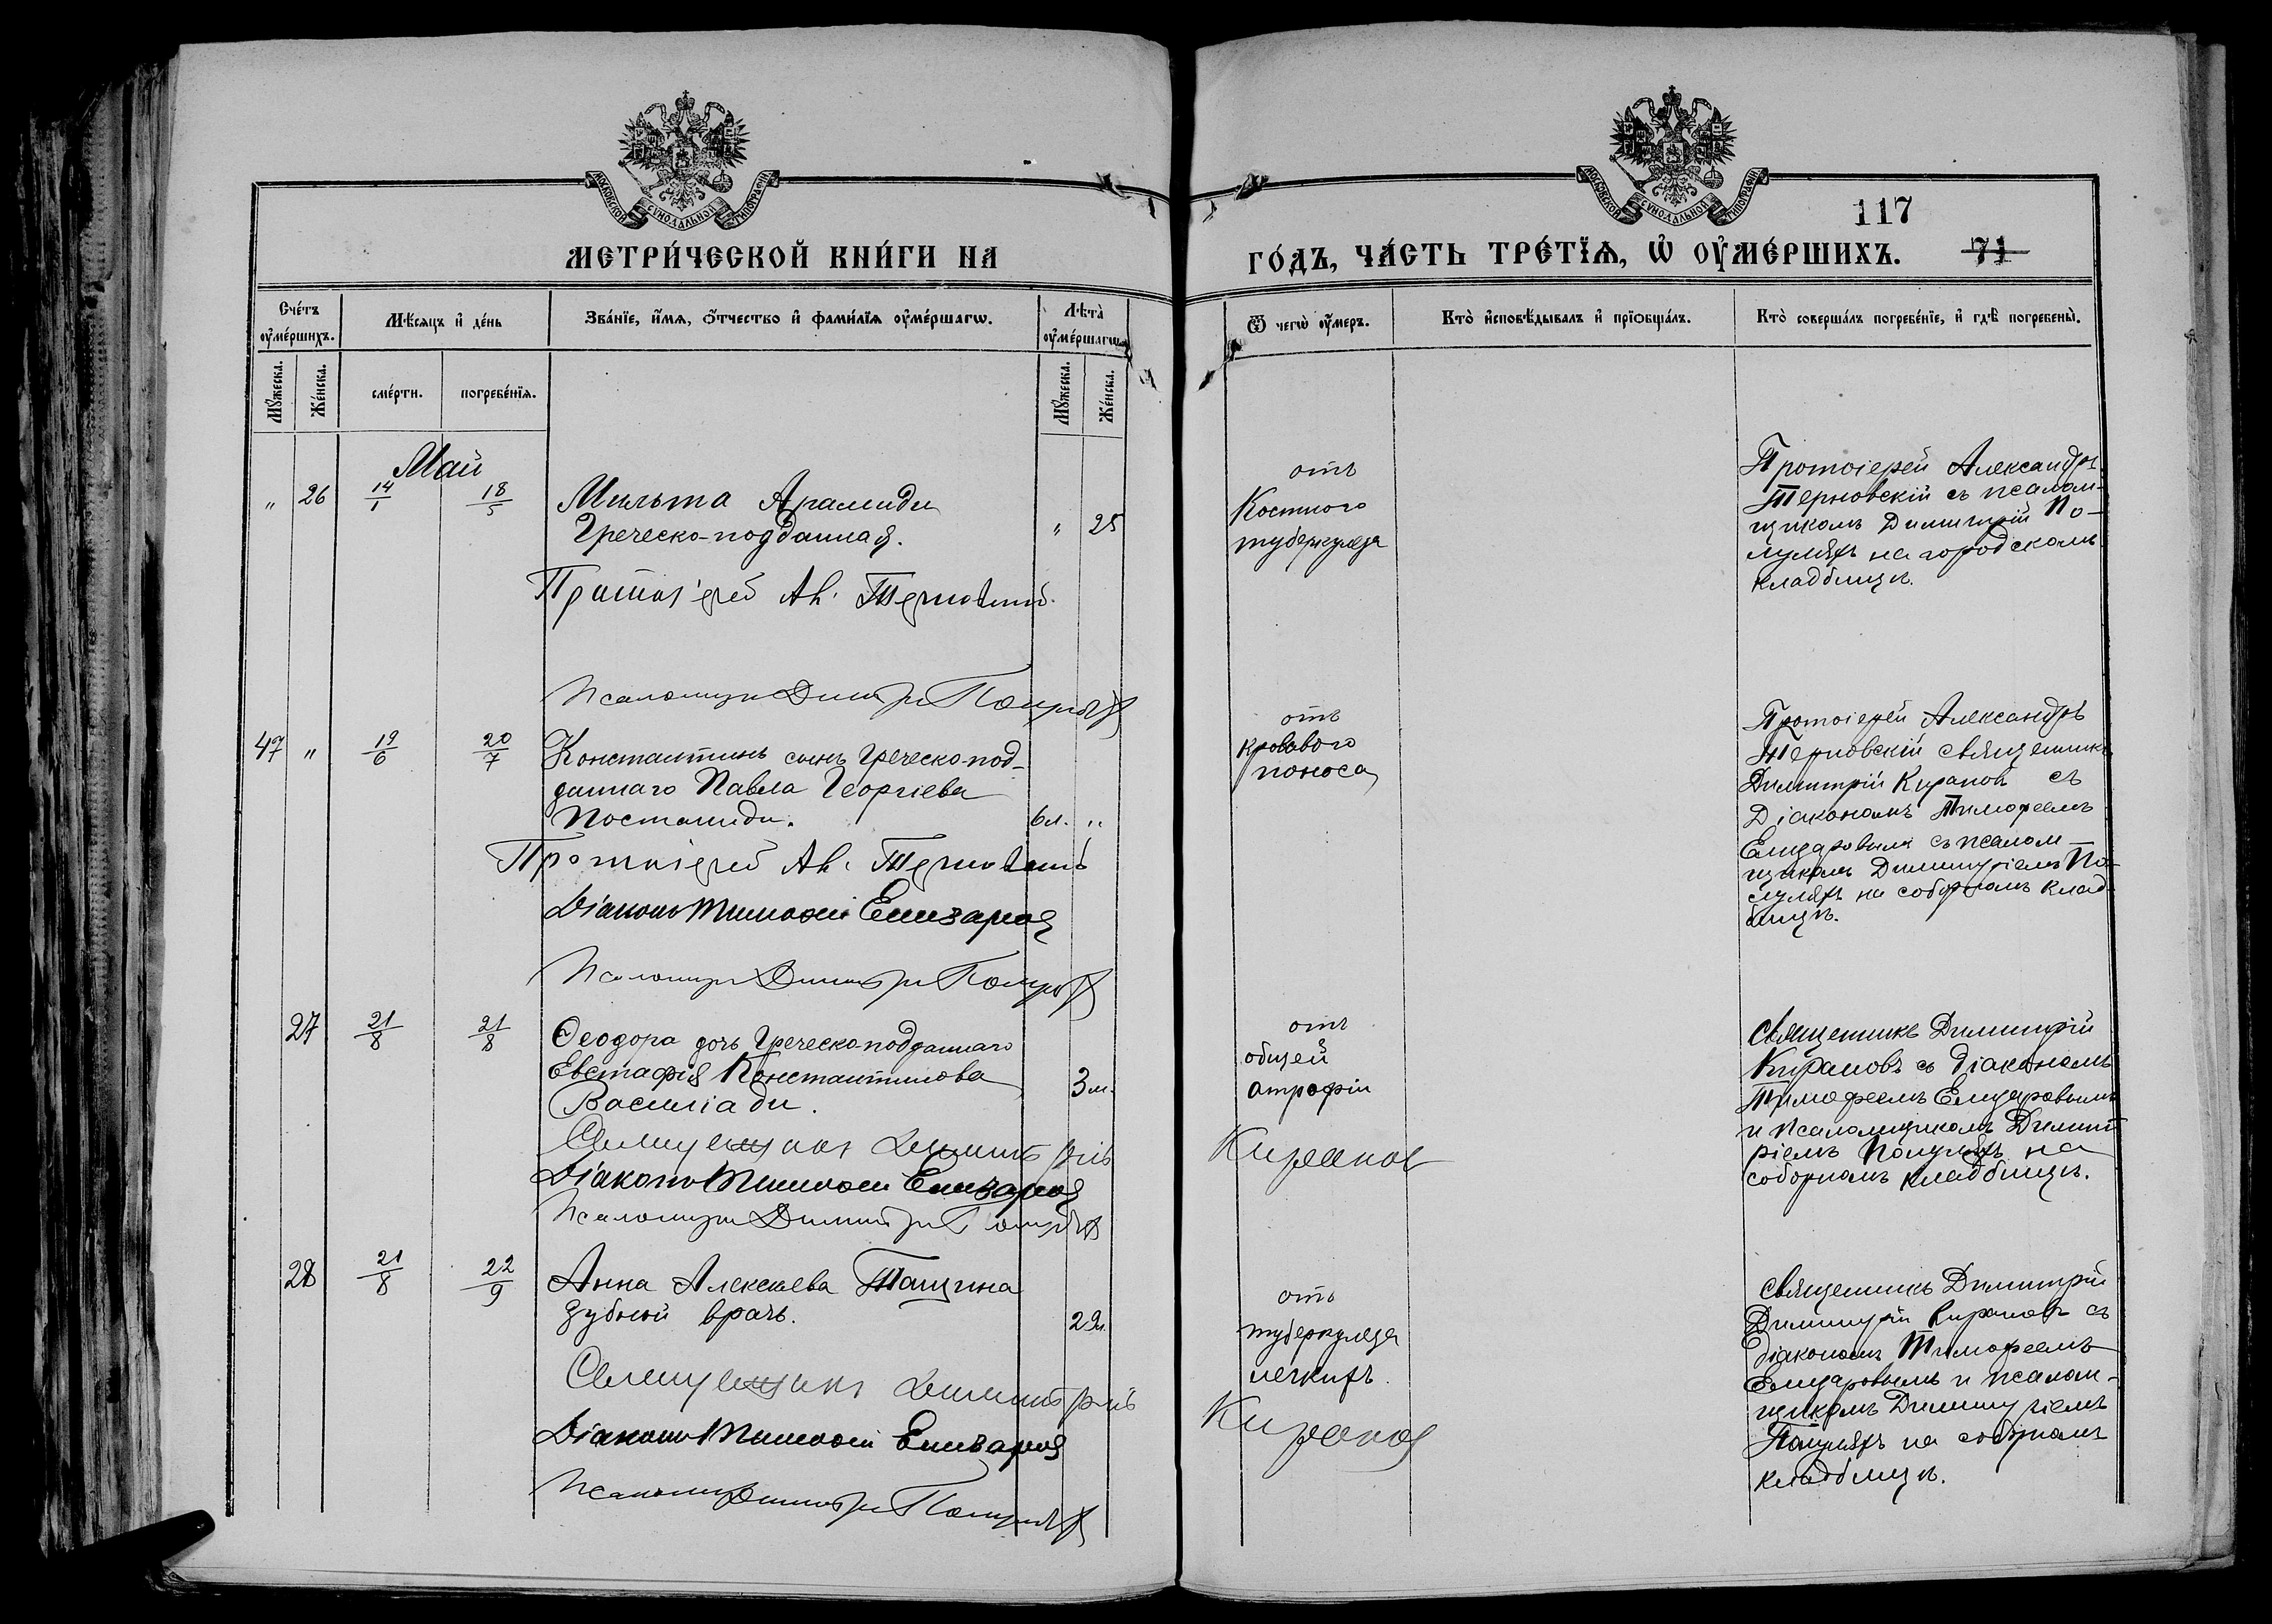 МОСКОВСКОЙ СѴНОДАЛЬНОЙ ТИПОГРАФІИ
МЕТРИ́ЧЕСКОЙ КНИ́ГИ НА
Сче́тъ ᲂу҆ме́ршихъ.
Мѣ́сяцъ и҆ де́нь
Зва́нїе, и҆́мѧ, ѻ҆́тчество и҆ фами́лїѧ ᲂу҆ме́ршагѡ.
Лѣ́та ᲂу҆ме́ршагѡ.
Мꙋ́жеска.
Же́нска.
сме́рти.
погребе́нїѧ.
Мꙋ́жеска.
Же́нска.
Май
" 26 14/1 18/5
Мильта Арамиди
Греческо-подданная.
" 25
Протоіерей Ал. Терновскій.
Псаломщик Димитрій
47 " 19/6 20/7
Константинъ сынъ Греческо-под-
даннаго Павла Георгіева
Постаниди.
6 л. "
Протоіерей Ал. Терновскій
Діаконъ Тимоѳей Елизаров
Псаломщик Димитрій
27 21/8 21/8
Ѳеодора дочь Греческо-подданнаго
Евстафія Константинова
Василіади.
3 м.
Священникъ Димитрій
Діаконъ Тимоѳей Елизаров
Псаломщик Димитрій
28 21/8 22/9
Анна Алексѣева Тащина
зубной врачъ.
29 л.
Священникъ Димитрій
Діаконъ Тимоѳей Елизаров
Псаломщик Димитрій
МОСКОВСКОЙ СѴНОДАЛЬНОЙ ТИПОГРАФІИ
117
ГО́ДЪ, ЧА́СТЬ ТРЕ́ТЇѦ, Ѡ҆ ОУ҆МЕ́РШИХЪ. 71
Ѿ чегѡ̀ ᲂу҆́меръ.
Кто̀ и҆сповѣ́дывалъ и҆ прїѡбща́лъ.
Кто̀ соверша́лъ погребе́нїе, и҆ гдѣ̀ погребены̀.
отъ
Костного
туберкулеза
Протоіерей Александръ
Терновскій съ псалом-
щикомъ Димитрій По-
на городскомъ
кладбищѣ.
отъ
кровавого
поноса
Протоіерей Александръ
Терновскій священникъ
Димитрій Кирановъ съ
Діакономъ Тимофеемъ
Елизаровымъ съ псалом-
щикомъ Димитріемъ По-
на соборномъ клад-
бищѣ.
отъ
общей
атрофіи
Киранов
священникъ Димитрій
Кирановъ съ діакономъ
Тимофеемъ Елизаровымъ
и псаломщикомъ Димит-
ріемъ на
соборномъ кладбищѣ.
отъ
туберкулеза
легкихъ.
Киранов
священникъ Димитрій
Димитрій Кирановъ съ
діакономъ Тимофеемъ
Елизаровымъ и псалом-
щикомъ Димитріемъ
на соборномъ
кладбищѣ.